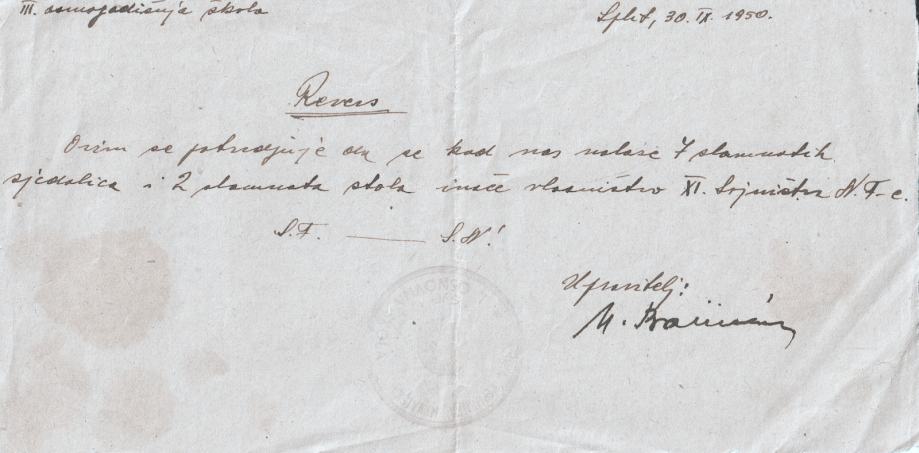 III. osmogodišnja škola
Split, 30. IX. 1950.
Revers
Ovim se potvrdjuje da se kod nas nalaze 7 slamnatih
sjedalica i 2 slamnata stola inače vlasništvo XI. N. F-e.
S.F. — S.N!
Upravitelj:
M.